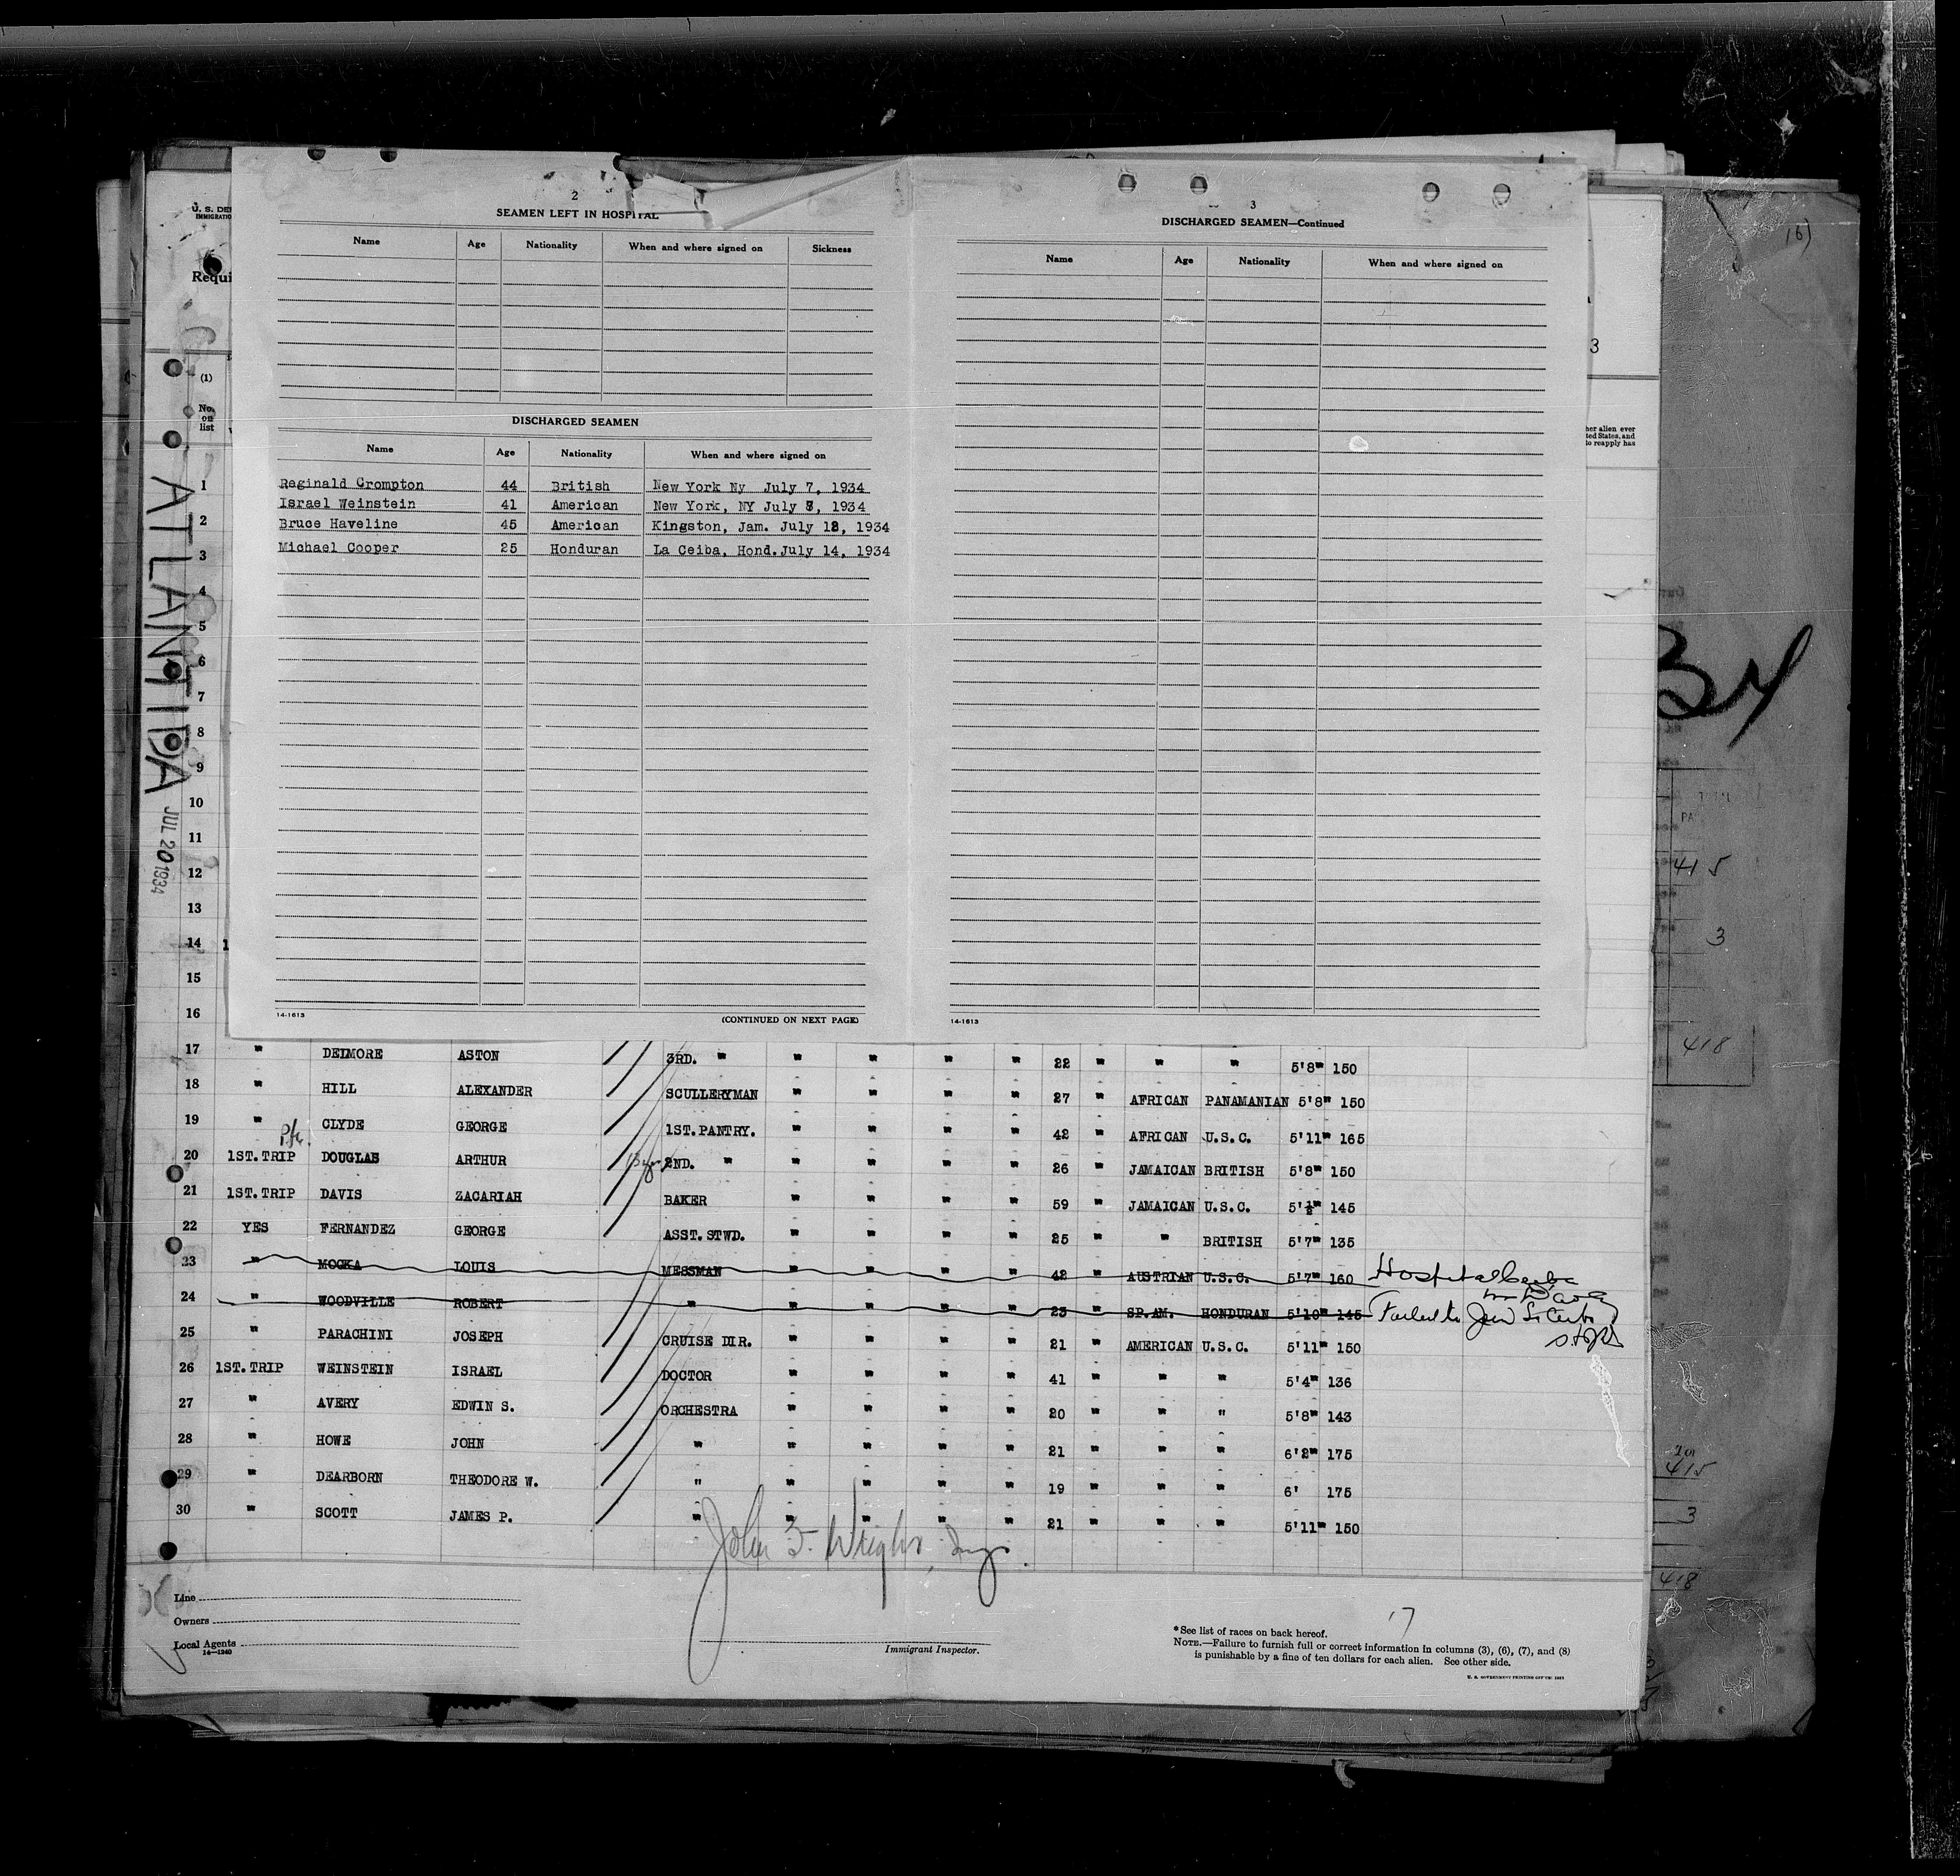 2
SEAMEN LEFT IN HOSPITAL
Name Age Nationality When and where signed on Sickness
DISCHARGED SEAMEN
Name Age Nationality When and where signed on
Reginald Crompton 44 British New York Ny July 7, 1934
Israel Weinstein 41 American New York, NY July 8, 1934
Bruce Haveline 45 American Kingston, Jam. July 12, 1934
Michael Cooper 25 Honduran La Ceiba, Hond. July 14, 1934
14-1613 (CONTINUED ON NEXT PAGE)
3
DISCHARGED SEAMEN—Continued
Name Age Nationality When and where signed on
14-1613
U. S. DE
IMMIGRATIO
Requi
(1)
No. on list
ATLANTIDA
JUL 20 1934
1
2
3
4
5
6
7
8
9
10
11
12
13
14 1
15
16
17 " DELMORE ASTON 3RD. " " " " " 22 " " " 5'8" 150
18 " HILL ALEXANDER SCULLERYMAN " " " " 27 " AFRICAN PANAMANIAN 5'8" 150
19 " CLYDE GEORGE 1ST.PANTRY. " " " " 42 " AFRICAN U.S.C. 5'11" 165
20 1ST.TRIP DOUGLAS ARTHUR 2ND. " " " " " 26 " JAMAICAN BRITISH 5'8" 150
21 1ST.TRIP DAVIS ZACARIAH BAKER " " " " 59 " JAMAICAN U.S.C. 5'½" 145
22 YES FERNANDEZ GEORGE ASST.STWD. " " " " 25 " " BRITISH 5'7" 135
23 " MOCKA LOUIS MESSMAN " " " " 42 " AUSTRIAN U.S.C. 5'7" 160 Hospital
24 " WOODVILLE ROBERT " " " " " 23 " SP.AM. HONDURAN 5'10" 145 Failed to Join
25 " PARACHINI JOSEPH CRUISE DIR. " " " " 21 " AMERICAN U.S.C. 5'11" 150
26 1ST.TRIP WEINSTEIN ISRAEL DOCTOR " " " " 41 " " " 5'4" 136
27 " AVERY EDWIN S. ORCHESTRA " " " " 20 " " " 5'8" 143
28 " HOWE JOHN " " " " " 21 " " " 6'2" 175
29 " DEARBORN THEODORE W. " " " " " 19 " " " 6' 175
30 " SCOTT JAMES P. " " " " " 21 " " " 5'11" 150
John F. Wright, Insp.
Line
Owners
Local Agents
14-1240
Immigrant Inspector.
17
*See list of races on back hereof.
NOTE.—Failure to furnish full or correct information in columns (3), (6), (7), and (8)
is punishable by a fine of ten dollars for each alien. See other side.
U. S. GOVERNMENT PRINTING OFFICE
3
her alien ever
ted States, and
to reapply has
34
PA
415
3
418
415
3
418